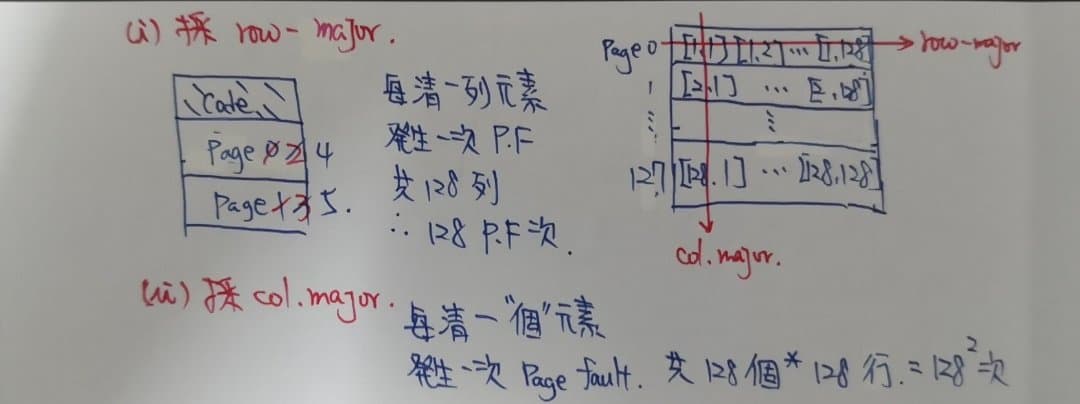 (i) 採 row-major.
Code
Page 0 2 4
Page 1 3 5.
每清一列元素
發生一次 P.F
共 128 列
∴ 128 P.F 次.
Page 0 [1,1] [1,2] … [1,128] → row-major
1 [2,1] … [2,128]
⋮ ⋮
127 [128,1] … [128,128]
col.major.
(ii) 採 col.major.
每清一"個"元素
發生一次 Page fault. 共 128 個 * 128 行. = 128² 次